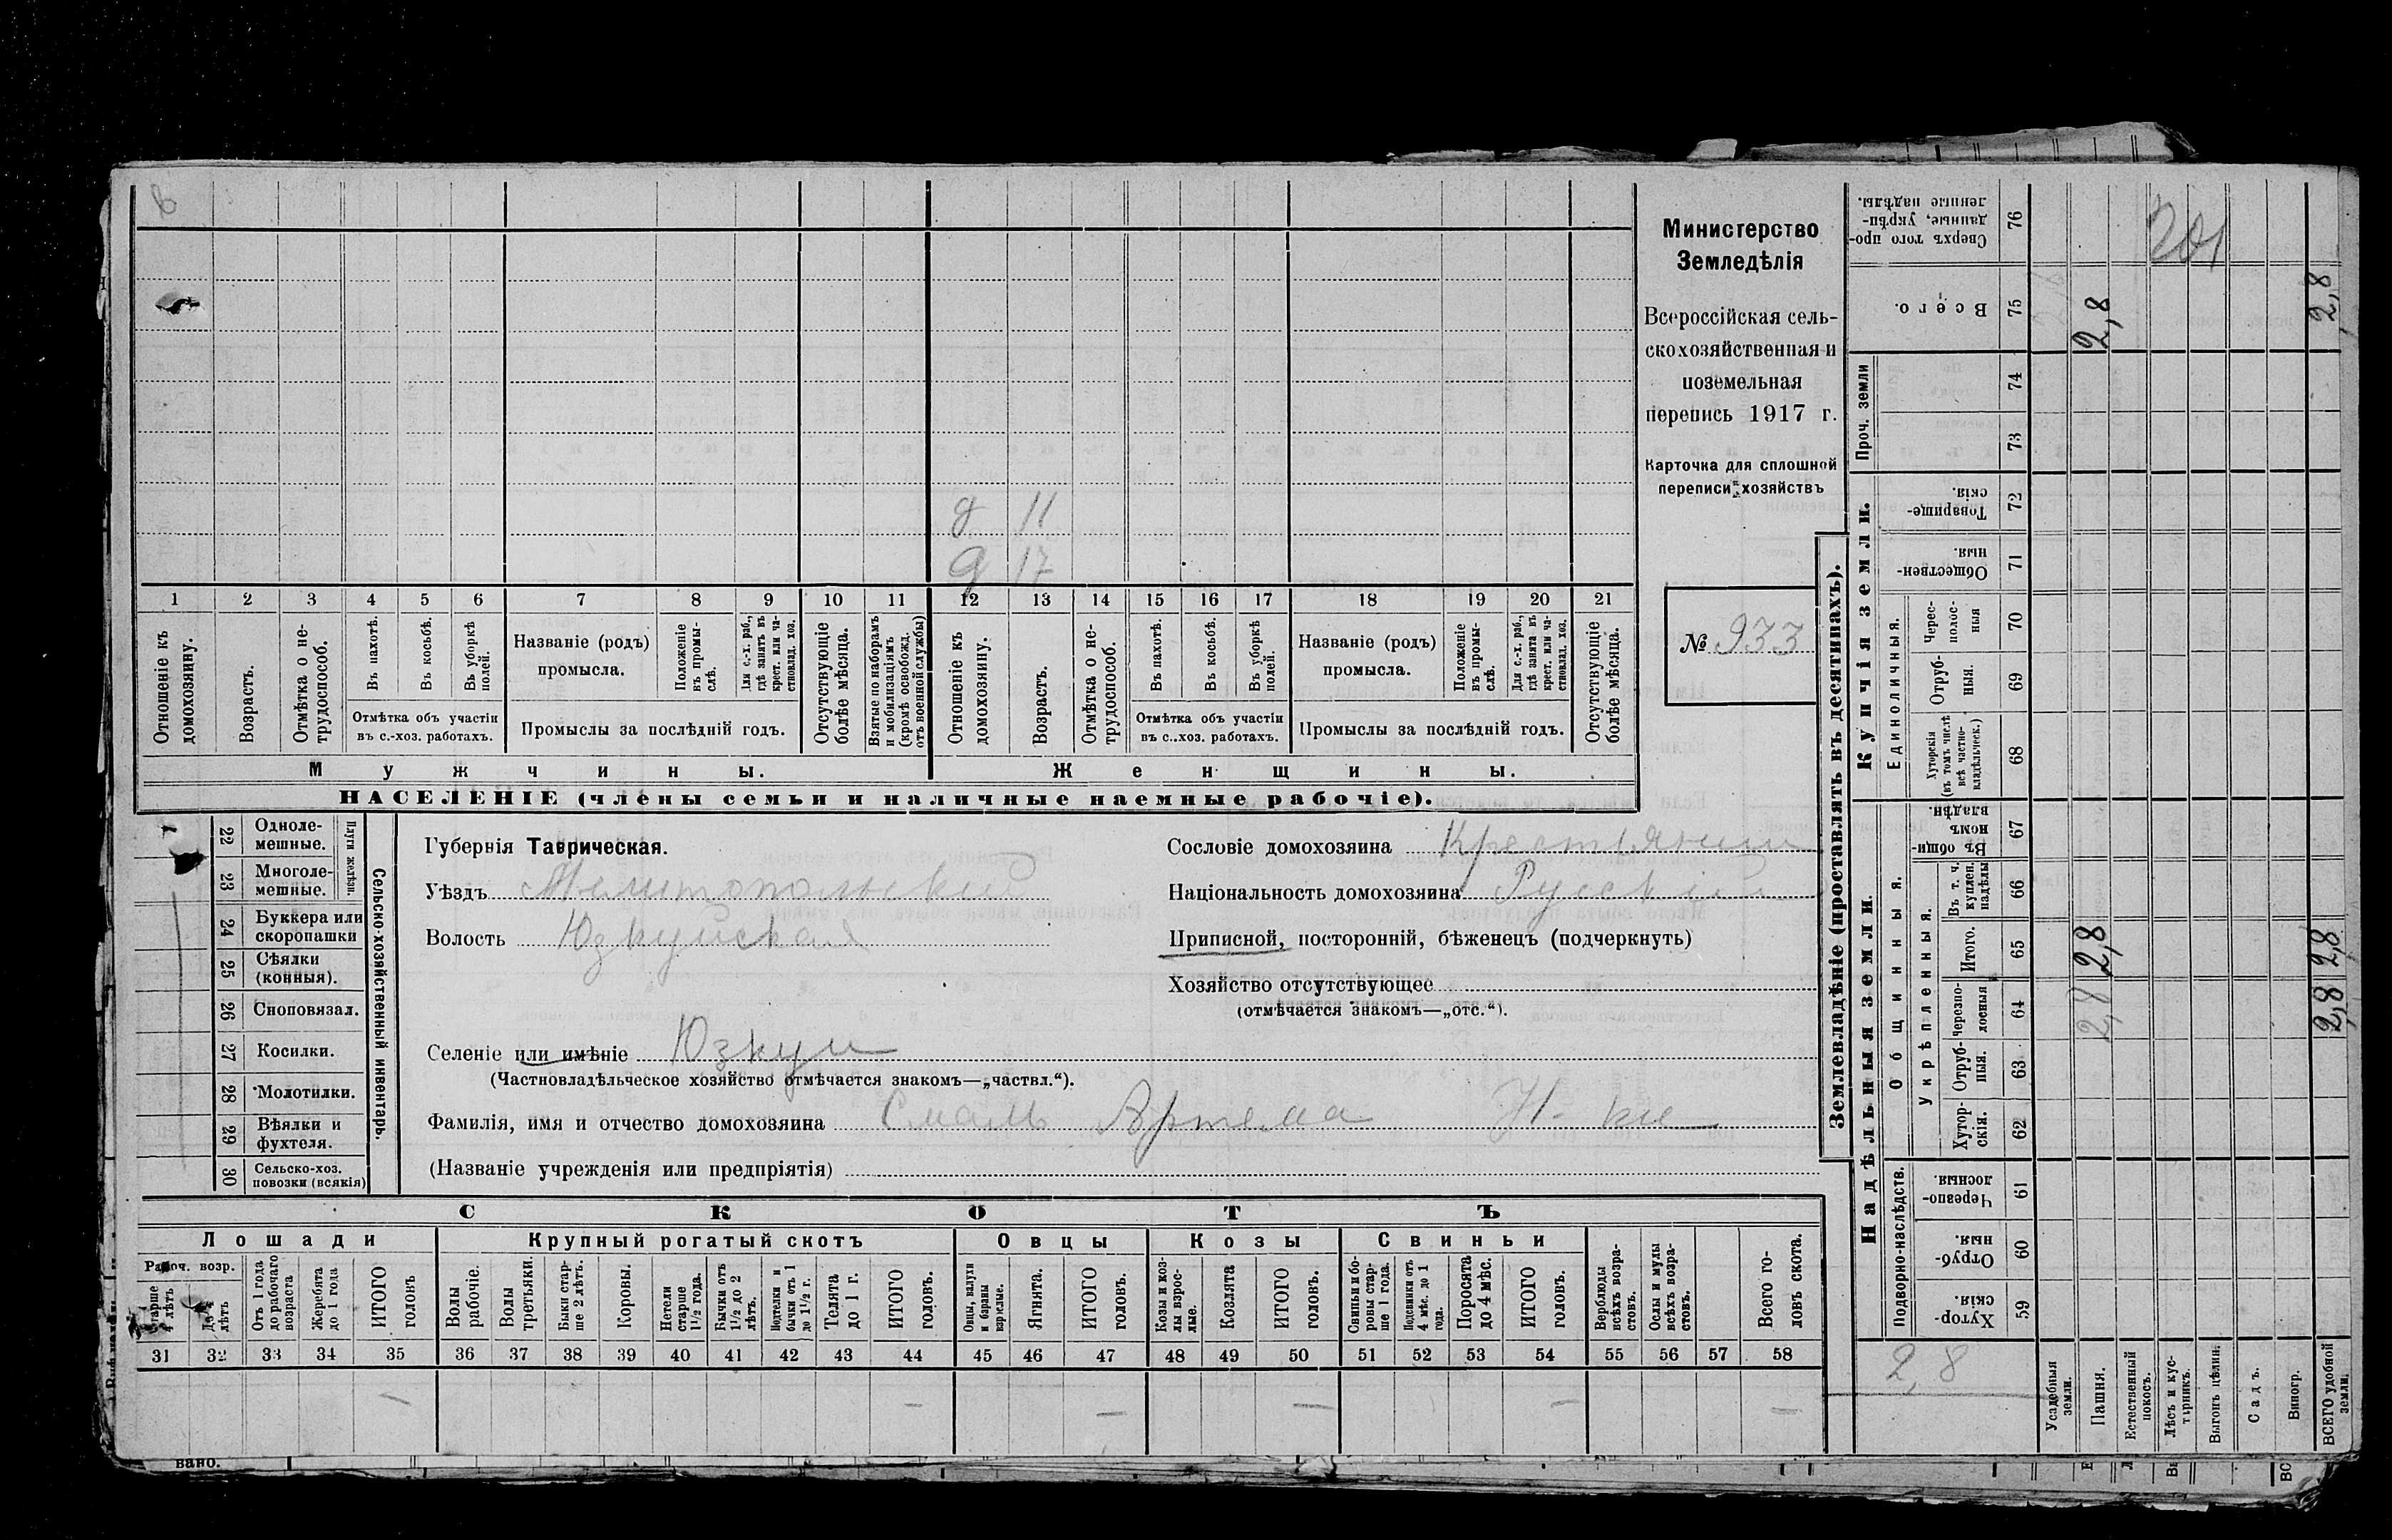 Министерство
Земледѣлія
Всероссійская сель-
скохозяйственная и
поземельная
перепись 1917 г.
Карточка для сплошной
переписи хозяйствъ
№ 933
д 11
д 17
1 2 3 4 5 6 7 8 9 10 11 12 13 14 15 16 17 18 19 20 21
Отношеніе къ домохозяину.
Возрастъ.
Отмѣтка о не-трудоспособ.
Въ пахотѣ.
Въ косьбѣ.
Въ уборкѣ полей.
Отмѣтка объ участіи
въ с.-хоз. работахъ.
Названіе (родъ)
промысла.
Положеніе въ промы-слѣ.
Для с.-х. раб., гдѣ занятъ въ крест. или ча-стновлад. хоз.
Промыслы за послѣдній годъ.
Отсутствующіе болѣе мѣсяца.
Взятые по наборамъ и мобилизаціямъ (кромѣ освобожд. отъ военной службы)
Отношеніе къ домохозяину.
Возрастъ.
Отмѣтка о не-трудоспособ.
Въ пахотѣ.
Въ косьбѣ.
Въ уборкѣ полей.
Отмѣтка объ участіи
въ с.-хоз. работахъ.
Названіе (родъ)
промысла.
Положеніе въ промы-слѣ.
Для с.-х. раб., гдѣ занята въ крест. или ча-стновлад. хоз.
Промыслы за послѣдній годъ.
Отсутствующіе болѣе мѣсяца.
Мужчины.
Женщины.
НАСЕЛЕНІЕ (члены семьи и наличные наемные рабочіе).
22 Одноле-мешные.
23 Многоле-мешные.
Плуги желѣзн.
24 Буккера или скоропашки
25 Сѣялки (конныя).
26 Сноповязал.
27 Косилки.
28 Молотилки.
29 Вѣялки и фухтеля.
30 Сельско-хоз. повозки (всякія)
Сельско-хозяйственный инвентарь.
Губернія Таврическая.
Уѣздъ Мелитопольскій
Волость Юзкуйская
Сословіе домохозяина Крестьянин
Національность домохозяина Русскій
Приписной, посторонній, бѣженецъ (подчеркнуть)
Хозяйство отсутствующее
(отмѣчается знакомъ—„отс.“).
Селеніе или имѣніе Юзкуи
(Частновладѣльческое хозяйство отмѣчается знакомъ—„частвл.“).
Фамилія, имя и отчество домохозяина Смаль Артема
(Названіе учрежденія или предпріятія)
СКОТЪ
Лошади
Крупный рогатый скотъ
Овцы
Козы
Свиньи
Рабоч. возр.
Старше 4 лѣтъ
До 4 лѣтъ
Отъ 1 года до рабочаго возраста
Жеребята до 1 года
ИТОГО головъ
Волы рабочіе.
Волы третьяки.
Быки стар-ше 2 лѣтъ.
Коровы.
Нетели старше 1½ года.
Бычки отъ 1½ до 2 лѣтъ.
Подтелки и бычки отъ 1 до 1½ г.
Телята до 1 г.
ИТОГО головъ.
Овцы, валухи и бараны взрослые.
Ягнята.
ИТОГО головъ.
Козы и коз-лы взрос-лые.
Козлята
ИТОГО головъ.
Свиньи и бо-ровы стар-ше 1 года.
Подсвинки отъ 4 мѣс. до 1 года.
Поросята до 4 мѣс.
ИТОГО головъ.
Верблюды всѣхъ возра-стовъ.
Ослы и мулы всѣхъ возра-стовъ.
Всего го-ловъ скота.
31 32 33 34 35 36 37 38 39 40 41 42 43 44 45 46 47 48 49 50 51 52 53 54 55 56 57 58
— — — — — —
Землевладѣніе (проставлять въ десятинахъ).
Надѣльныя земли.
Купчія земли.
Проч. земли
Подворно-наслѣдств.
Общинныя.
Укрѣпленныя.
Единоличныя.
59 Хутор-скія.
60 Отруб-ныя.
61 Черезпо-лосныя.
62 Хутор-скія.
63 Отруб-ныя.
64 Черезпо-лосныя
65 Итого.
66 Въ т. ч. куплен. надѣлы
67 Въ общи-номъ владѣн.
68 Хуторскія (въ томъ числѣ всѣ частно-владѣльческ.)
69 Отруб-ныя.
70 Черес-полос-ныя
71 Обществен-ныя.
72 Товарище-скія.
73
74
75 Всего.
76 Сверхъ того про-данные, укрѣп-ленные надѣлы.
2,8
Усадебныя земли.
Пашня. 2,8 2,8 2,8
Естественный покосъ.
Лѣсъ и кус-тарникъ.
Выгонъ цѣлин.
Садъ.
Виногр.
ВСЕГО удобной земли. 2,8 2,8 2,8
201
вано.